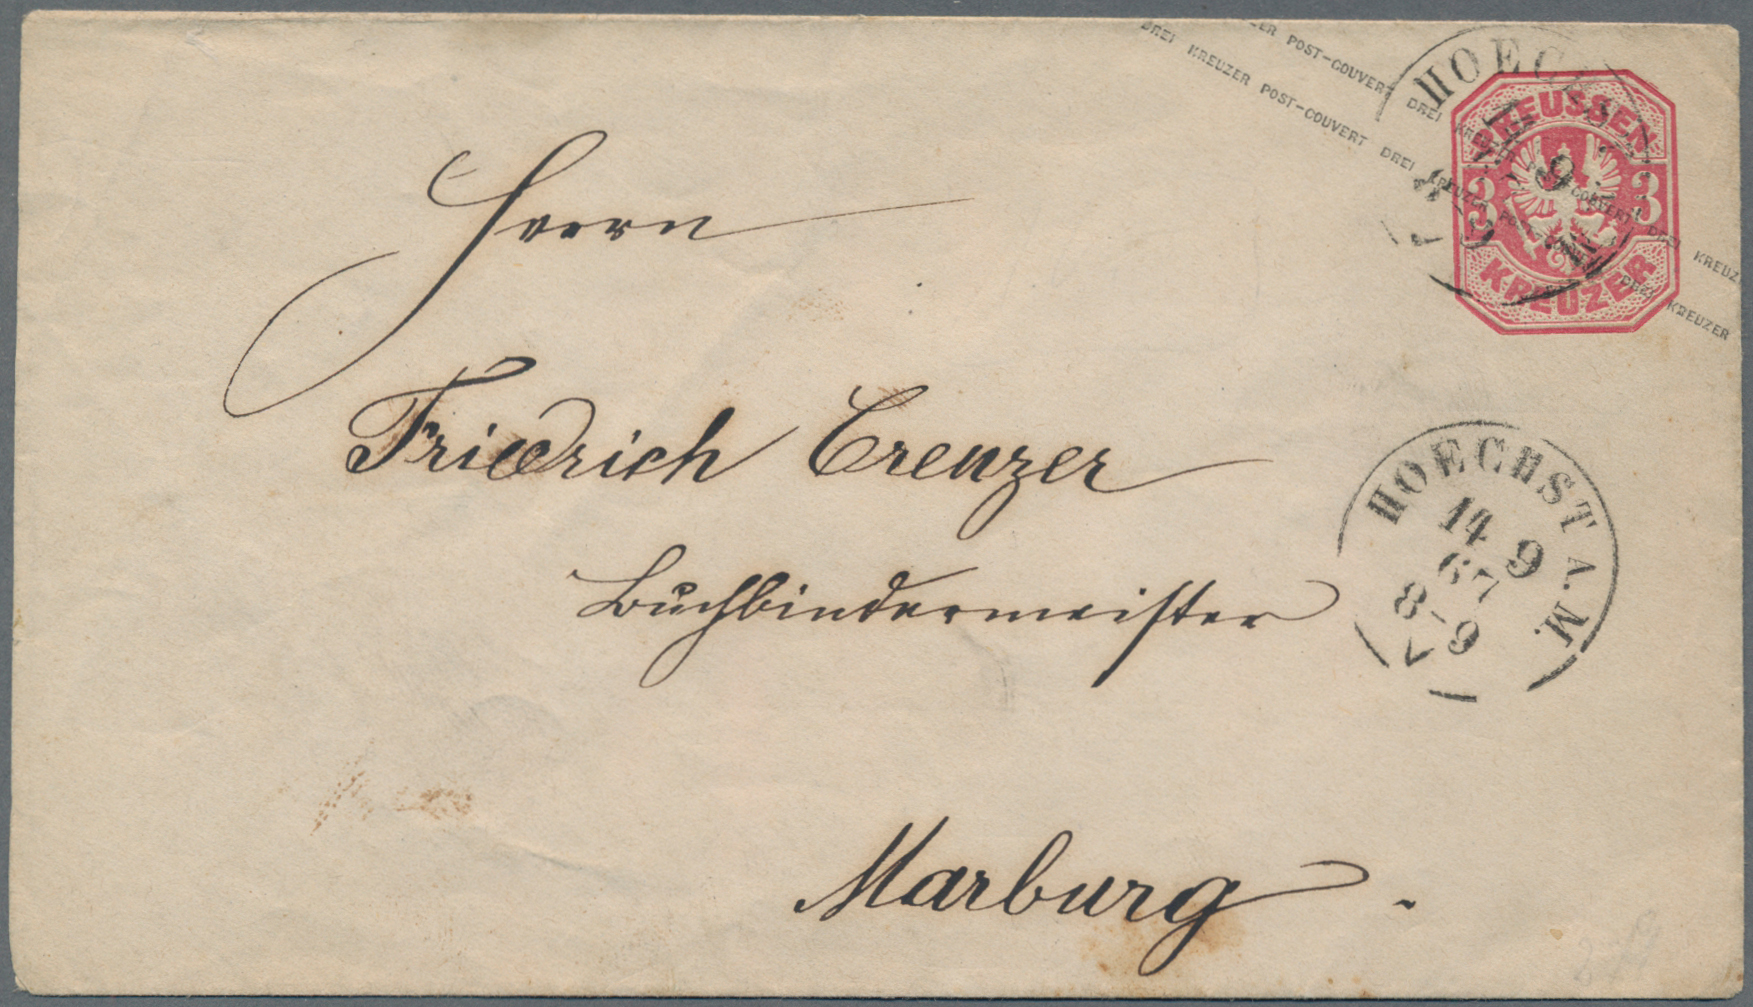 DREI KREUZER POST-COUVERT DREI KREUZER POST-COUVERT DREI KREUZER
DREI KREUZER POST-COUVERT DREI KREUZER DREI KREUZER
PREUSSEN
3 3
KREUZER
HOECHST
9
Herrn
Friedrich Creuzer
Buchbindermeister
Marburg.
HOECHST A. M.
14 9
67
8-9